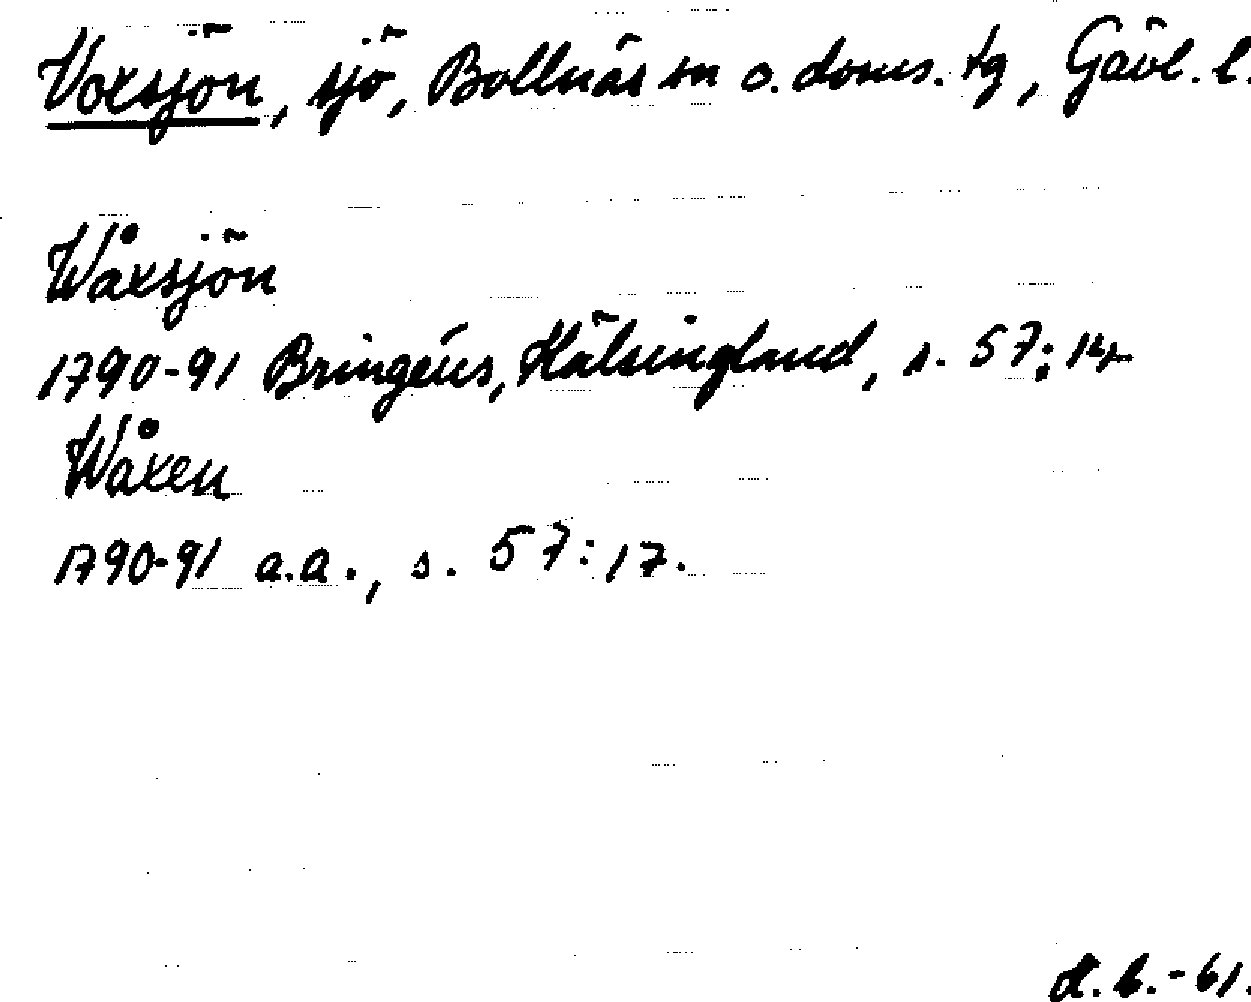 Voxsjön, sjö, Bollnäs sn o. doms. tg, Gävl. l.
Wåxsjön
1790-91 Bringéus, Hälsingland, s. 57:14
Wåxen
1790-91 a.a., s. 57:17.
L.b.-61.